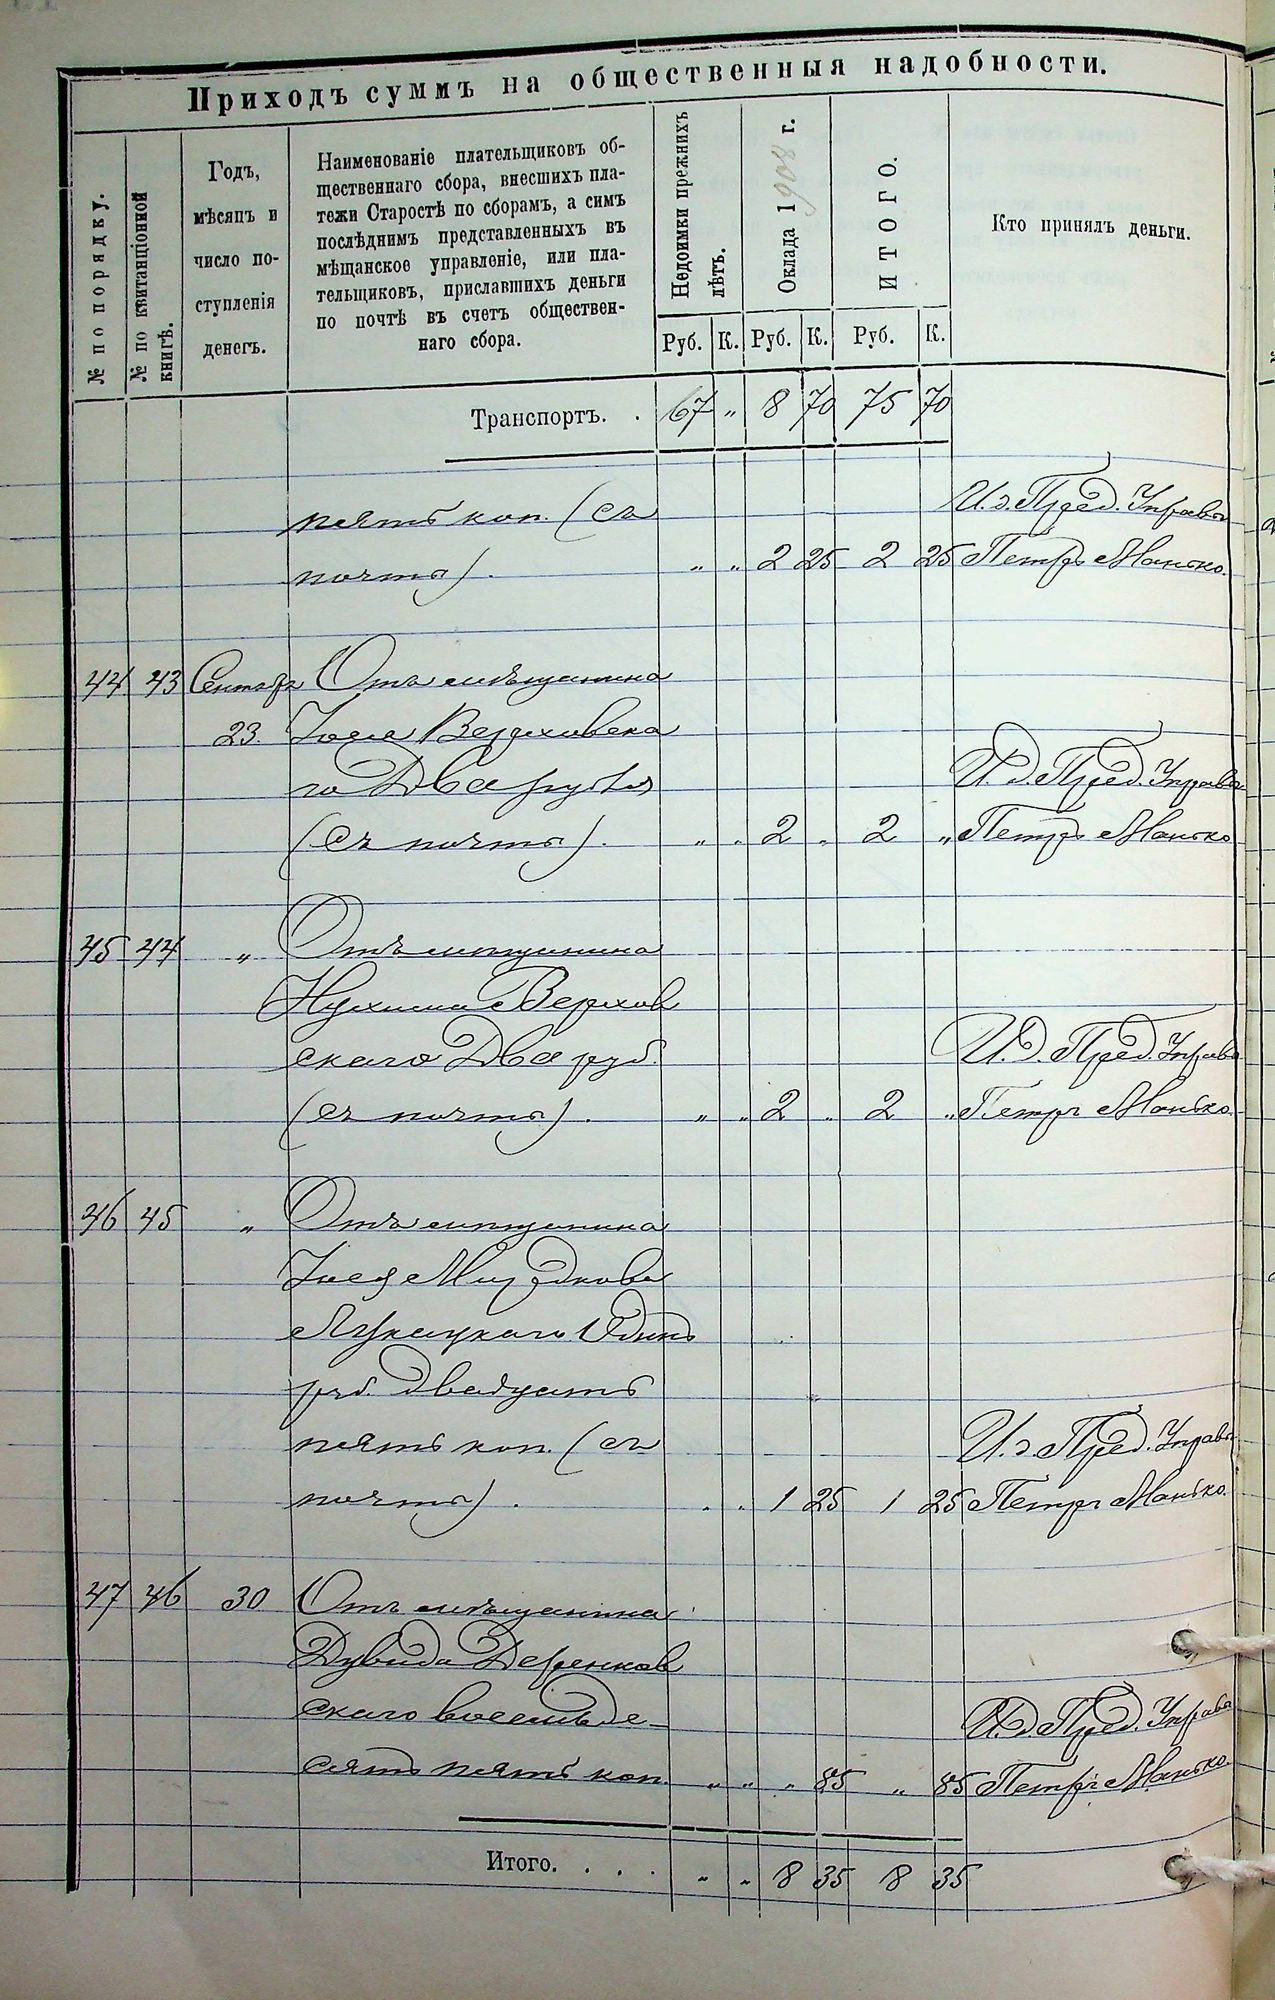 Приходъ суммъ на общественныя надобности.
№ по порядку.
№ по квитанціонной
книгѣ.
Годъ,
мѣсяцъ и
число по-
ступленія
денегъ.
Наименованіе плательщиковъ об-
щественнаго сбора, внесшихъ пла-
тежи Старостѣ по сборамъ, а симъ
послѣднимъ представленныхъ въ
мѣщанское управленіе, или пла-
тельщиковъ, приславшихъ деньги
по почтѣ въ счетъ обществен-
наго сбора.
Недоимки прежнихъ
лѣтъ.
Оклада 1908 г.
ИТОГО.
Кто принялъ деньги.
Руб. К. Руб. К. Руб. К.
Транспортъ. . 67 „ 8 70 75 70
пять коп. (съ И. д. Пред. Управы
почты). „ „ 2 25 2 25 Петръ Манько.
44 43 Сентябр Отъ мѣщанина
23. Іосея Верховска
го Два рубля И. д. Пред. Управы
(съ почты). „ „ 2 „ 2 „ Петръ Манько
45 44 „ Отъ мѣщанина
Нухима Верхов
скаго Два руб. И. д. Пред. Управы
(съ почты). „ „ 2 „ 2 „ Петръ Манько.
46 45 „ Отъ мѣщанина
Лукацкаго Одинъ
руб. двадцать
пять коп. (съ И. д. Пред. Управы
почты). „ „ 1 25 1 25 Петръ Манько.
47 46 30 Отъ мѣщанина
Дувида Деренков
скаго восемьде- И. д. Пред. Управы
сять пять коп. „ „ „ 85 „ 85 Петръ Манько.
Итого. . . . „ „ 8 35 8 35